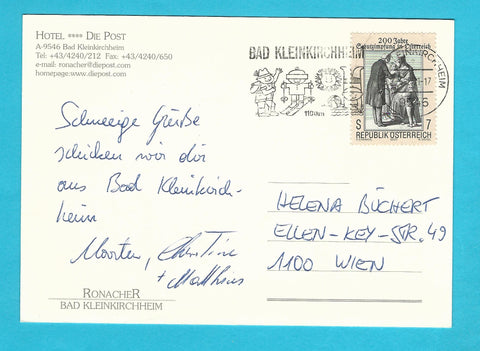 HOTEL **** DIE POST
A-9546 Bad Kleinkirchheim
Tel: +43/4240/212 Fax: +43/4240/650
e-mail: ronacher@diepost.com
homepage:www.diepost.com
BAD KLEINKIRCHHEIM
KLEINKIRCHHEIM
-17
9546
200 Jahre
Schutzimpfung in Österreich
S 7
REPUBLIK ÖSTERREICH
Schneeige Grüße
schicken wir dir
aus Bad Kleinkirch-
heim
Morten, Christine
+ Matthias
HELENA BÜCHERT
ELLEN-KEY-STR. 49
1100 WIEN
RONACHER
BAD KLEINKIRCHHEIM